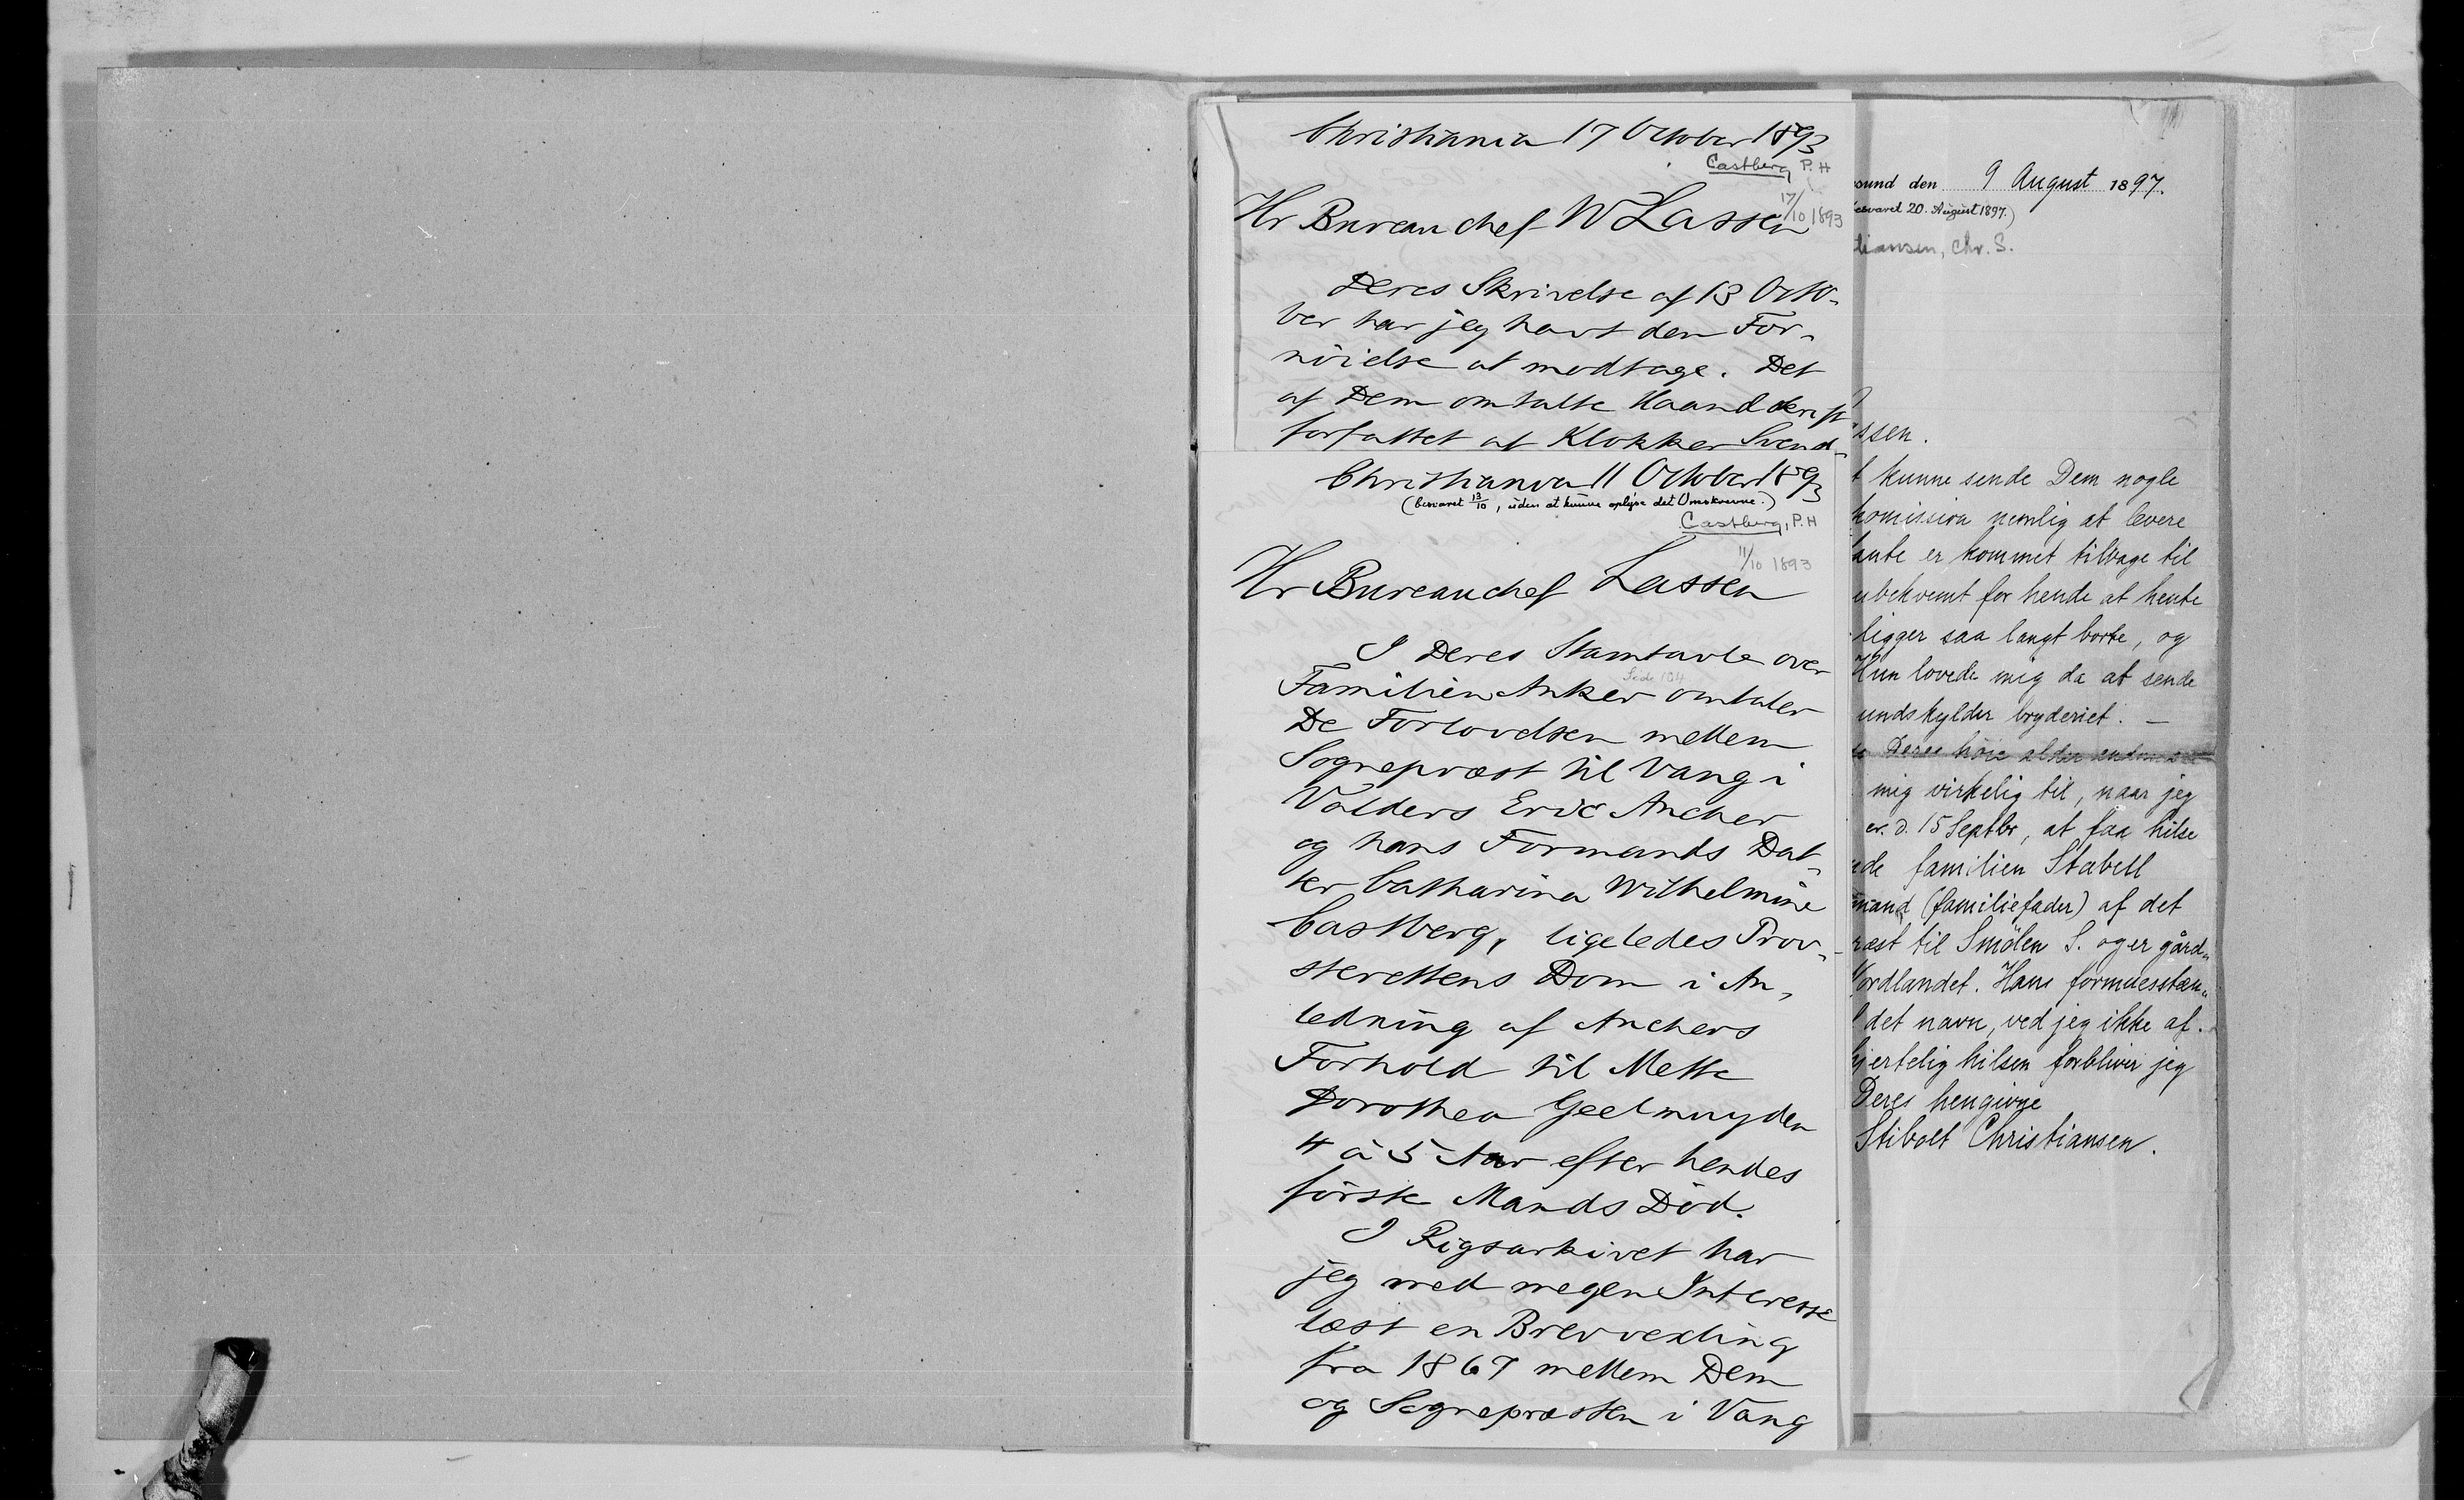 Christiania 17 October 1893
Castberg, P. H
17/10 1893
Hr Bureauchef W Lassen
Deres Skrivelse af 13 Octo-
ber har jeg havt den For-
nöielse at modtage. Det
af Dem omtalte Haandskrift
forfattet af Klokker Svend-
Christiania 11 October 1893
(besvaret 13/10, uden at kunne oplyse det Omskrevne.)
Castberg, P. H
11/10 1893
Hr Bureauchef Lassen
I Deres Stamtavle over
Side 104
Familien Anker omtaler
De Forlovelsen mellem
Sognepræst til Vang i
Valders Eric Ancher
og hans Formands Dat-
ter Catharina Wilhelmine
Castberg, ligeledes Prov-
sterettens Dom i An-
ledning af Anchers
Forhold til Mette
Dorothea Geelmuyden
4 à 5 Aar efter hendes
förste Mands Död.
I Rigsarkivet har
jeg med megen Interesse
læst en Brevvexling
fra 1867 mellem Dem
og Sognepræsten i Vang
sund den 9 August 1897.
esvaret 20. August 1897.)
tiansen, Chr. S.
ssen.
t kunne sende Dem nogle
komission nemlig at levere
tante er kommet tilbage til
ubekvemt for hende at hente
ligger saa langt borte, og
Hun lovede mig da at sende
undskylder bryderiet. —
Deres höie alder
mig virkelig til, naar jeg
er. d. 15 Septbr, at faa hilse
nde familien Stabell
mand (familiefader) af det
ræst til Smölen S. og er gård-
Nordlandet. Hans formuesstæn-
det navn, ved jeg ikke af.
hjertelig hilsen forbliver jeg
Deres hengivne
Stibolt Christiansen.